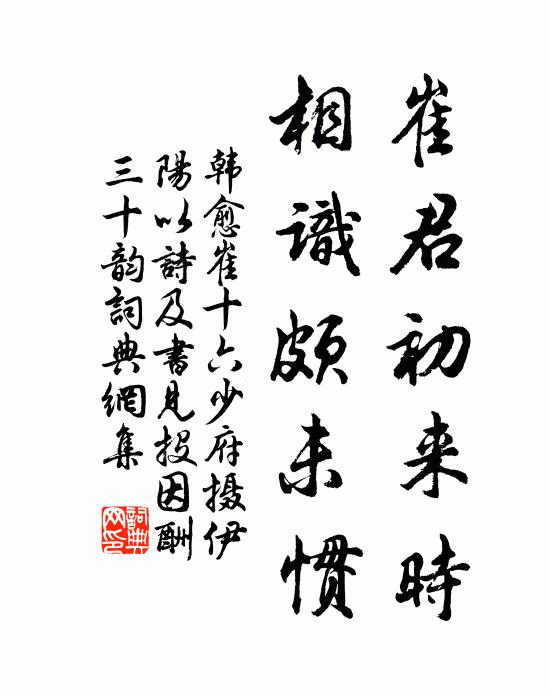 崔君初来時
相識頗未慣
韩愈崔十六少府摄伊
陽以詩及書見投因酬
三十韵詞典網集
詞典
网印